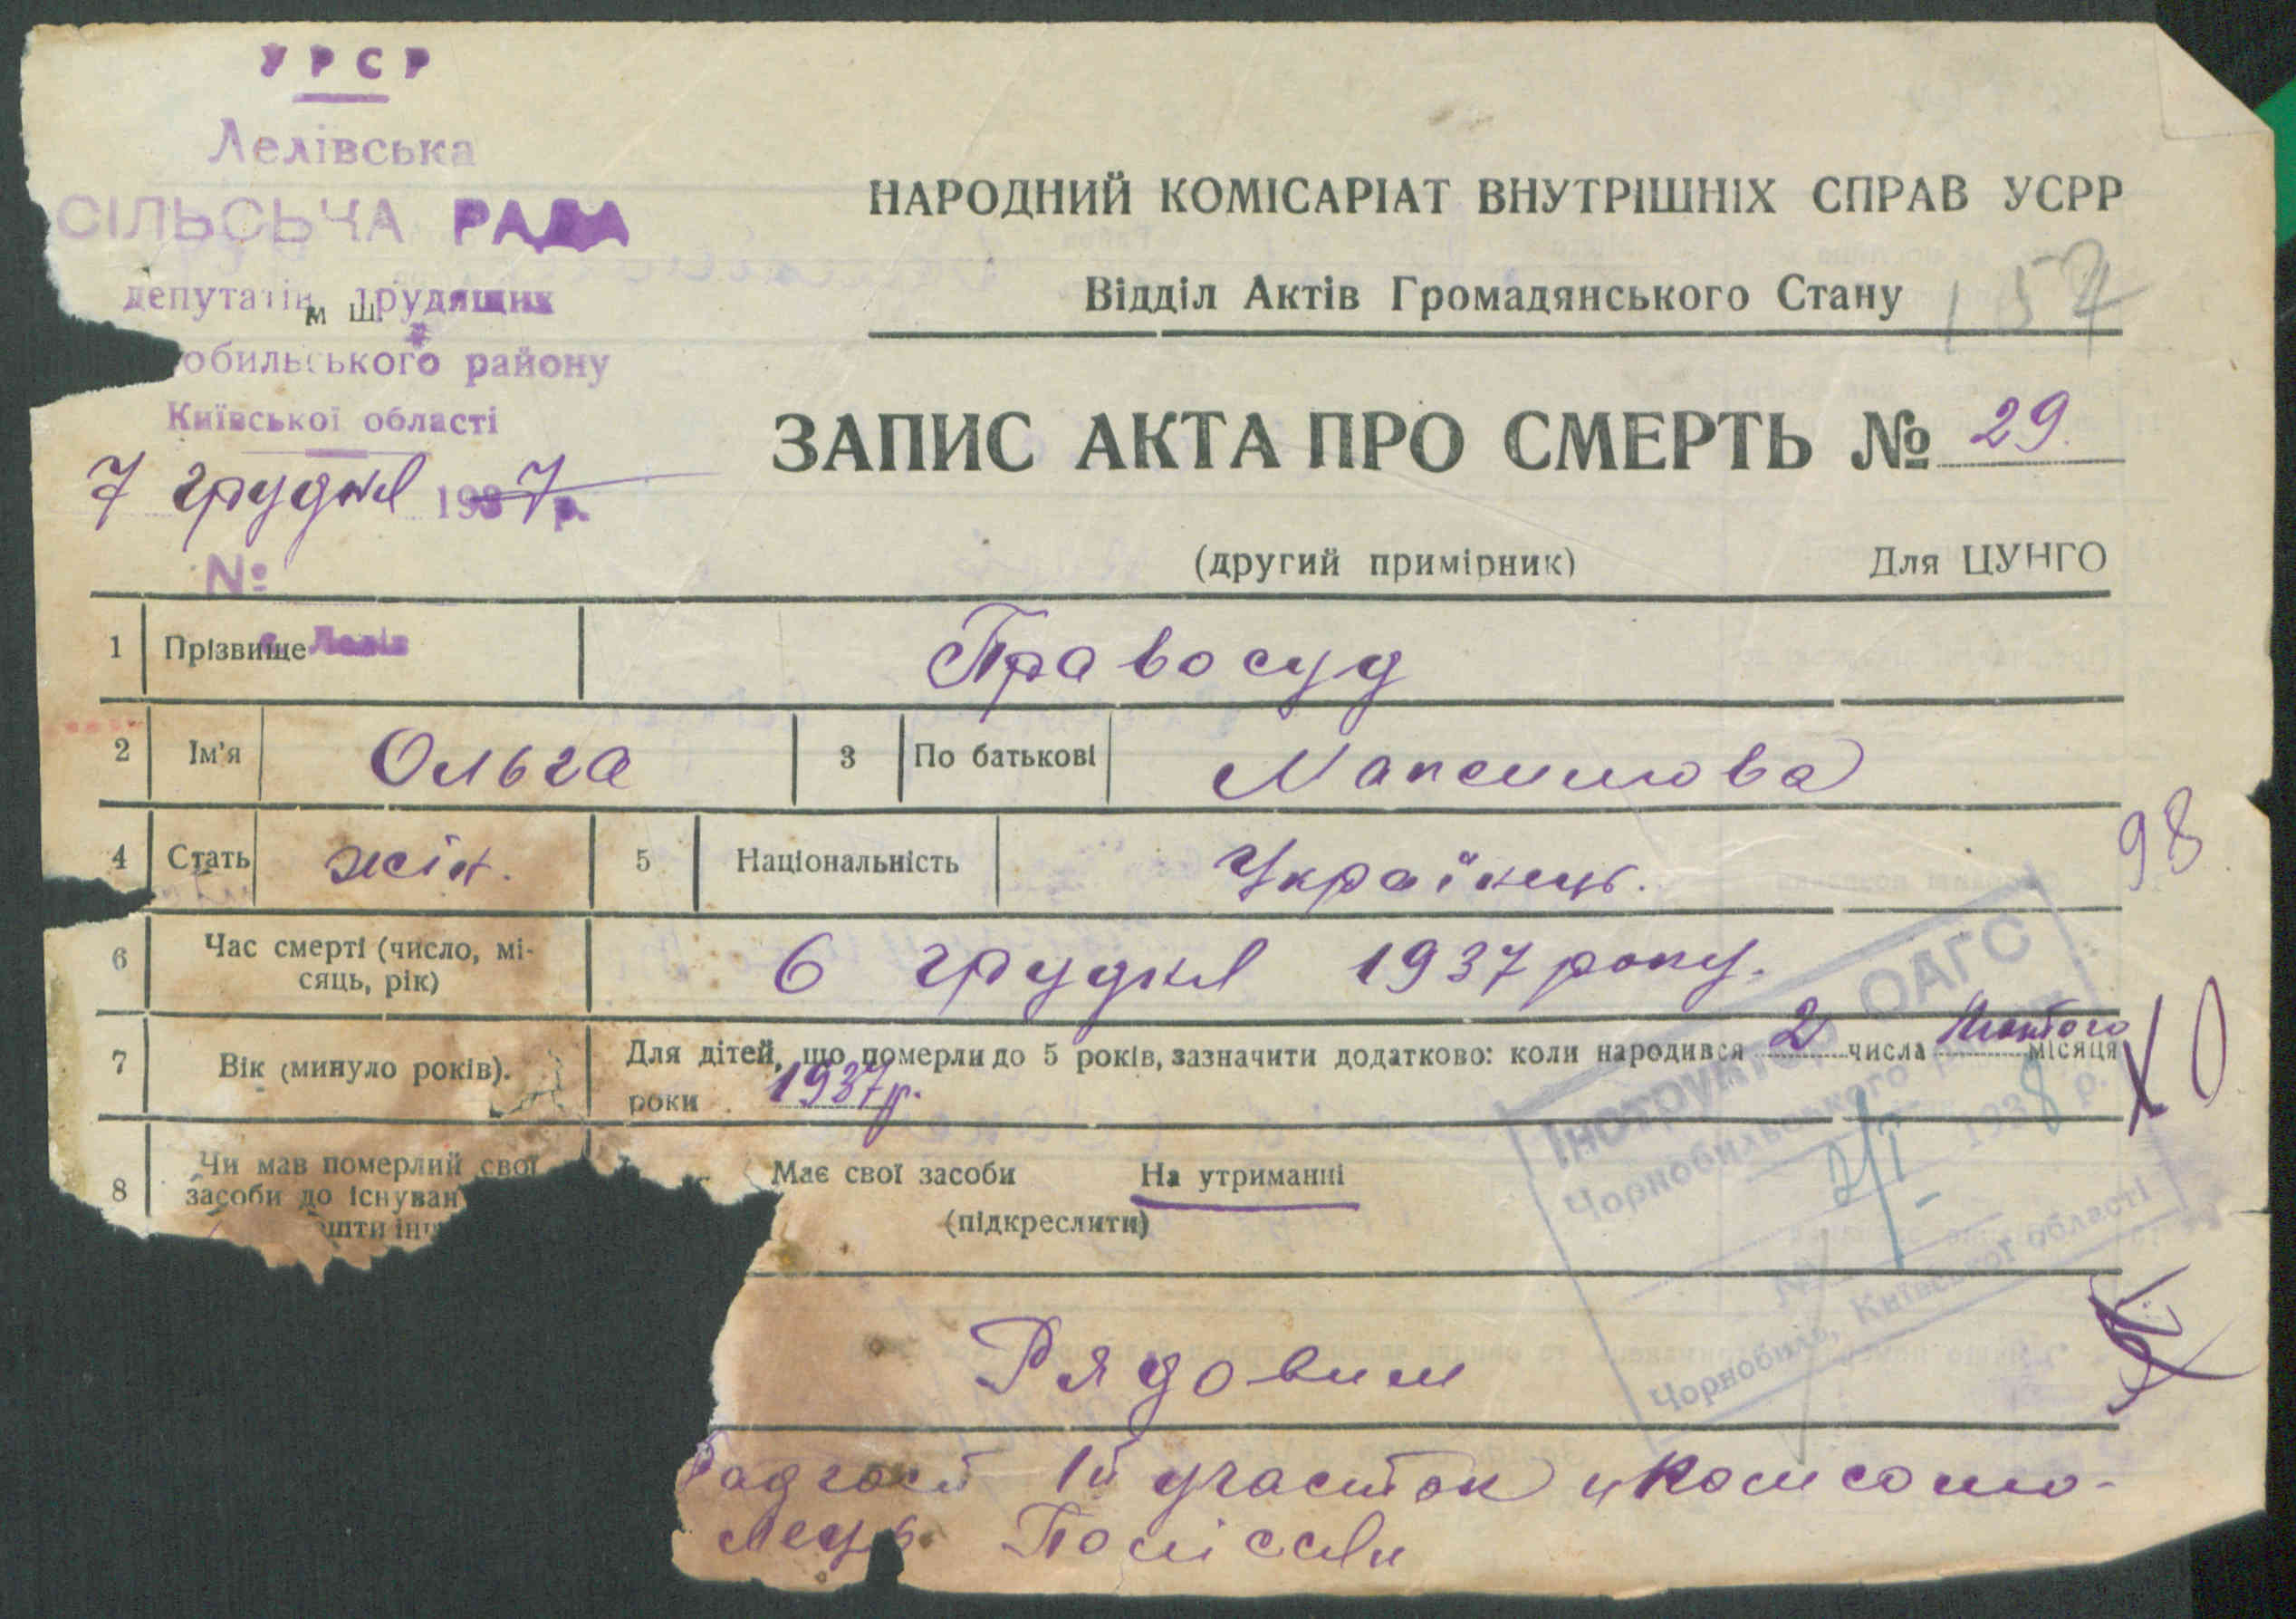 УРСР
Лелівська
СІЛЬСЬЧА РАДА
депутатів трудящих
м ш
обильського району
Київської області
7 грудня 1937 р.
№
НАРОДНИЙ КОМІСАРІАТ ВНУТРІШНІХ СПРАВ УСРР
Відділ Актів Громадянського Стану
157
ЗАПИС АКТА ПРО СМЕРТЬ № 29
(другий примірник) Для ЦУНГО
с. Лелів
1 Прізвище Правосуд
2 Ім'я Ольга 3 По батькові Максимова
4 Стать жін. 5 Національність Українець.
98
6 Час смерті (число, мі-
сяць, рік) 6 грудня 1937 року.
7 Вік (минуло років). Для дітей, що померли до 5 років, зазначити додатково: коли народився 2 числа Лютого місяця
роки 1937 р.
10
Інструктор ОАГС
Чорнобильського району
2/I 1938 р.
№
Чорнобиль, Київської області
8 Чи мав померлий свої
засоби до існуван
ошти інш
Має свої засоби На утриманні
(підкреслити)
Рядовим
Радгосп 1й участок "Комсомо-
лець Поліссян